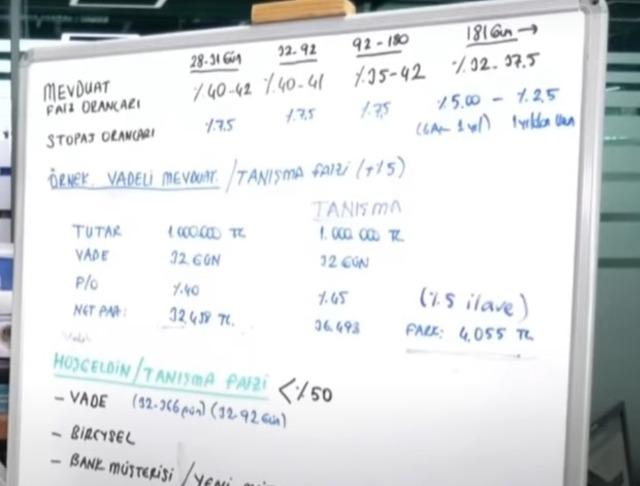 28-31 Gün 32-92 92-180 181 Gün →
MEVDUAT FAİZ ORANLARI %40-42 %40-41 %35-42 %32-37.5
STOPAJ ORANLARI %7.5 %7.5 %7.5 %5.00 - %2.5
(6Ay- 1 yıl) 1 yıldan Uzun
ÖRNEK. VADELİ MEVDUAT. / TANIŞMA FAİZİ (+%5)
TANIŞMA
TUTAR 1.000.000 TL 1.000.000 TL
VADE 32 GÜN 32 GÜN
F/O %40 %45 (%5 ilave)
NET PARA: 32.438 TL. 36.493 FARK: 4.055 TL
HOŞGELDİN/TANIŞMA FAİZİ <%50
- VADE (32-366 gün) (32-92 Gün)
- BİREYSEL
- BANK MÜŞTERİSİ / YENİ